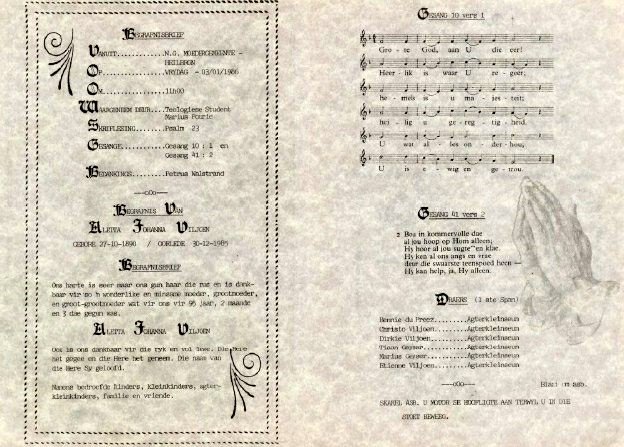 BEGRAFNISBRIEF
VANUIT..............N.G. MOEDERGEMEENTE -
HEILBRON
OP..................VRYDAG - 03/01/1986
OM..................11h00
WAARGENEEM DEUR....Teologiese Student
Marius Fourie
SKRIFLESING.........Psalm 23
GESANGE.............Gesang 10 : 1 en
Gesang 41 : 2
BEDANKINGS..........Petrus Walstrand
---oOo---
BEGRAFNIS VAN
ALETTA JOHANNA VILJOEN
GEBORE 27-10-1890 / OORLEDE 30-12-1985
BEGRAFNISBRIEF
Ons harte is seer maar ons gun haar die rus en is dank-
baar vir so 'n wonderlike en minsame moeder, grootmoeder,
en groot-grootmoeder wat vir ons vir 95 jaar, 2 maande
en 3 dae gegun was.
ALETTA JOHANNA VILJOEN
Ook is ons dankbaar vir die ryk en vol lewe. Die Here
het gegee en die Here het geneem. Die naam van
die Here sy geloofd.
Namens bedroefde kinders, kleinkinders, agter-
kleinkinders, familie en vriende.
GESANG 10 vers 1
Gro - te God, aan U die eer!
Heer - lik is waar U re - geer;
he - mels is u ma - jes - teit;
hei - lig u ge - reg - tig - heid.
U wat al - les on - der - hou,
U is e - wig en ge - trou.
GESANG 41 vers 2
2 Bou in kommervolle dae
al jou hoop op Hom alleen;
Hy hoor al jou sugte en klae.
Hy ken al ons angs en vrae
deur die swaarste teenspoed heen —
Hy kan help, ja, Hy alleen.
DRAERS (1 ste Span)
Bennie du Preez........Agterkleinseun
Christo Viljoen........Agterkleinseun
Dirkie Viljoen.........Agterkleinseun
Tiaan Geyser...........Agterkleinseun
Marius Geyser..........Agterkleinseun
Etienne Viljoen........Agterkleinseun
---oOo---
Blaai om asb.
SKAKEL ASB. U MOTOR SE HOOFLIGTE AAN TERWYL U IN DIE
STOET BEWEEG.